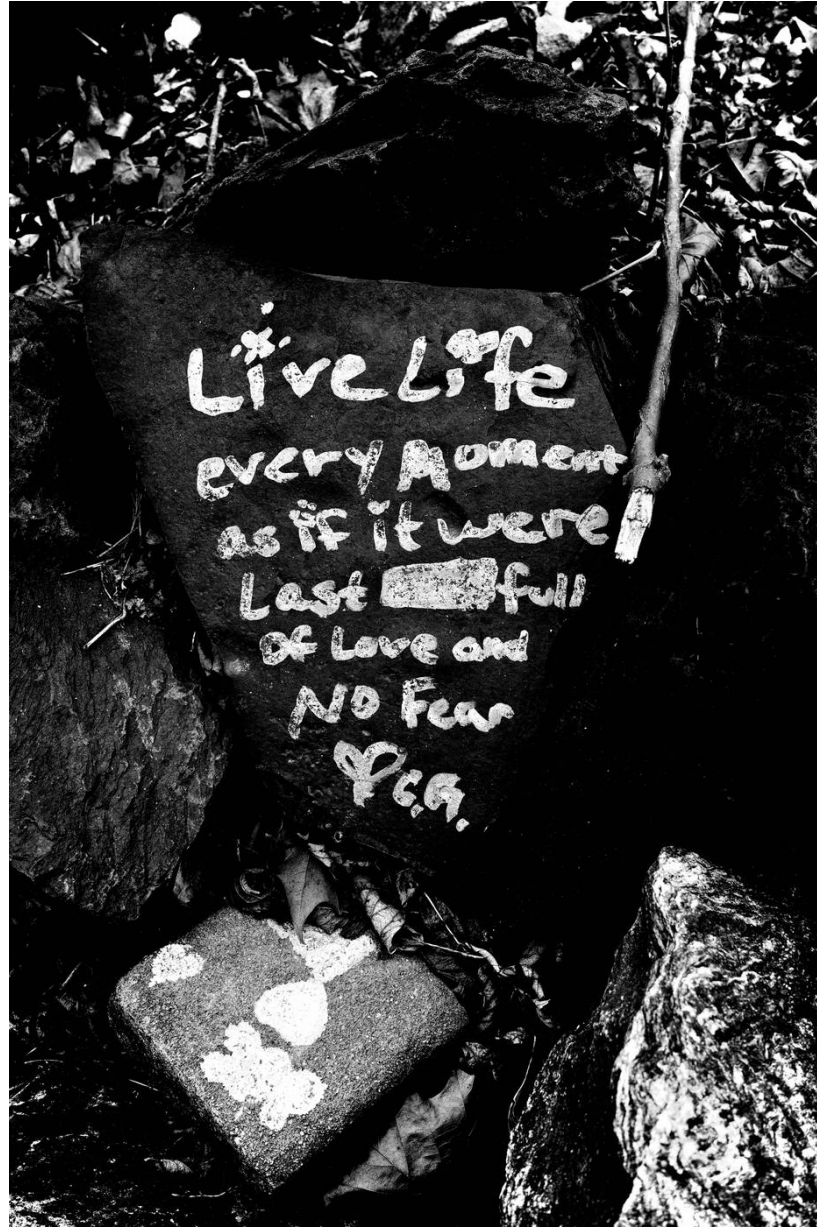 Live Life
every Moment
as if it were
Last full
Of Love and
No Fear
C.G.